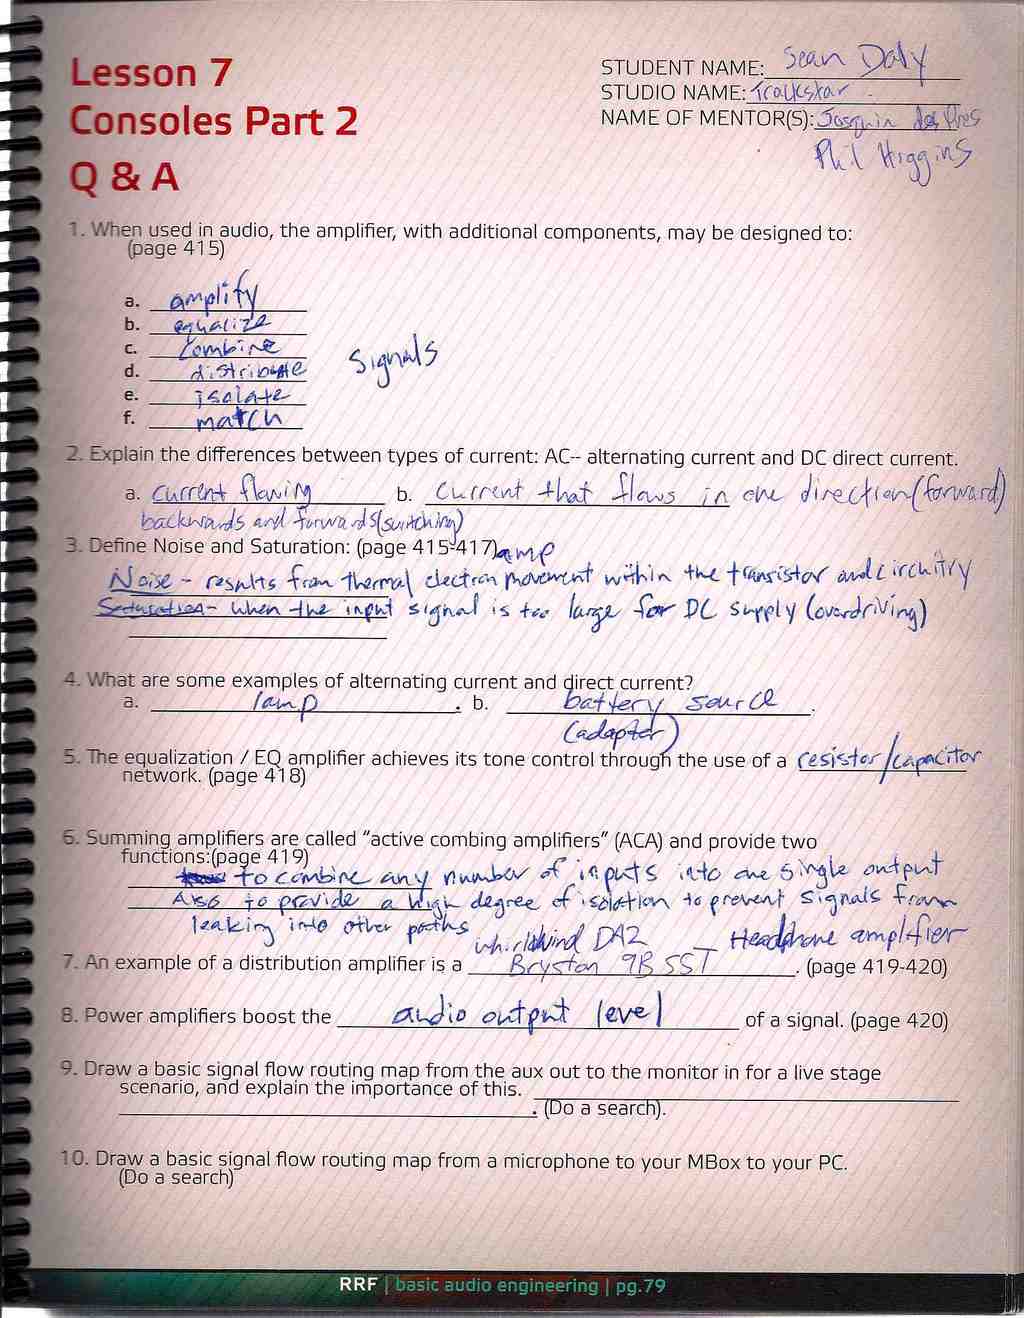 Lesson 7
Consoles Part 2
Q & A
STUDENT NAME: Sean Daly
STUDIO NAME: Trackstar
NAME OF MENTOR(S): Josquin des Pres
Phil Higgins
1. When used in audio, the amplifier, with additional components, may be designed to:
(page 415)
a. amplify
b. equalize
c. combine
d. distribute
e. isolate
f. match
Signals
2. Explain the differences between types of current: AC-- alternating current and DC direct current.
a. Current flowing b. Current that flows in one direction (forward)
backwards and forwards (switching)
3. Define Noise and Saturation: (page 415-417) amp
Noise - results from thermal electron movement within the transistor and circuitry
Saturation - when the input signal is too large for DC supply (overdriving)
4. What are some examples of alternating current and direct current?
a. lamp . b. battery source .
(adapter)
5. The equalization / EQ amplifier achieves its tone control through the use of a resistor/capacitor
network. (page 418)
6. Summing amplifiers are called "active combing amplifiers" (ACA) and provide two
functions:(page 419)
to combine any number of inputs into one single output
Also to provide a high degree of isolation to prevent signals from
leaking into other paths
whirlwind DA2 — Headphone amplifier
7. An example of a distribution amplifier is a Bryston 9B SST . (page 419-420)
8. Power amplifiers boost the audio output level of a signal. (page 420)
9. Draw a basic signal flow routing map from the aux out to the monitor in for a live stage
scenario, and explain the importance of this.
. (Do a search).
10. Draw a basic signal flow routing map from a microphone to your MBox to your PC.
(Do a search)
RRF | basic audio engineering | pg.79